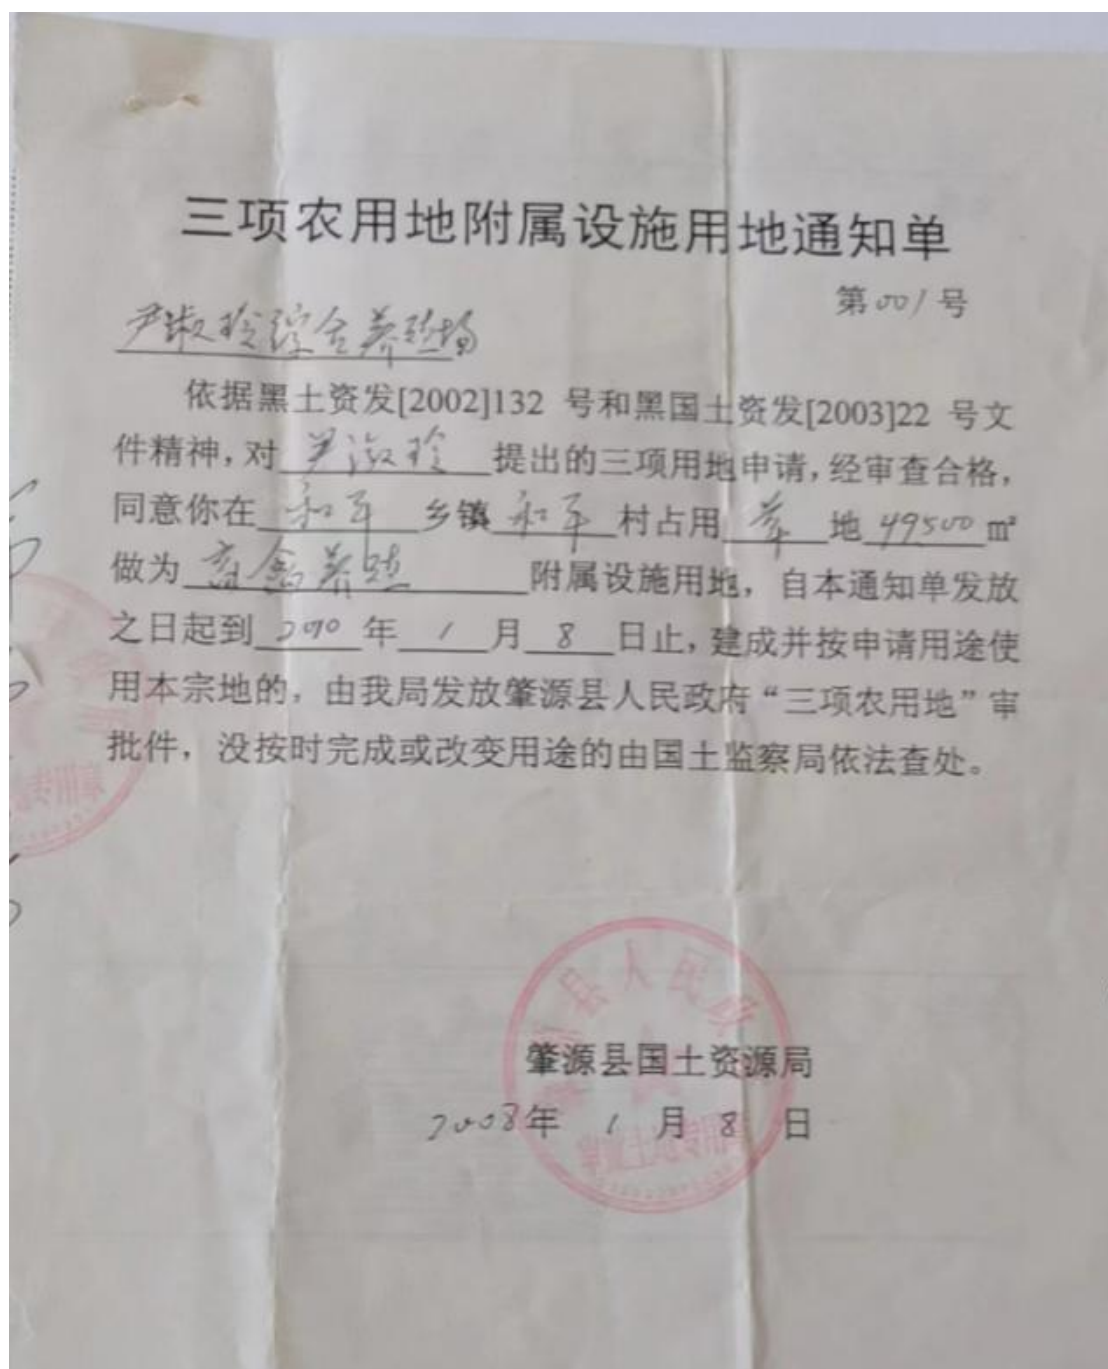 三项农用地附属设施用地通知单
第001号
尹淑玲综合养殖场
依据黑土资发[2002]132 号和黑国土资发[2003]22 号文
件精神，对 尹淑玲 提出的三项用地申请，经审查合格，
同意你在 和平 乡镇 和平 村占用 草 地 49500 m²
做为 畜禽养殖 附属设施用地，自本通知单发放
之日起到 2010 年 1 月 8 日止，建成并按申请用途使
用本宗地的，由我局发放肇源县人民政府“三项农用地”审
批件，没按时完成或改变用途的由国土监察局依法查处。
专用章
县人民政
肇源县国土资源局
2008年 1 月 8 日
专用